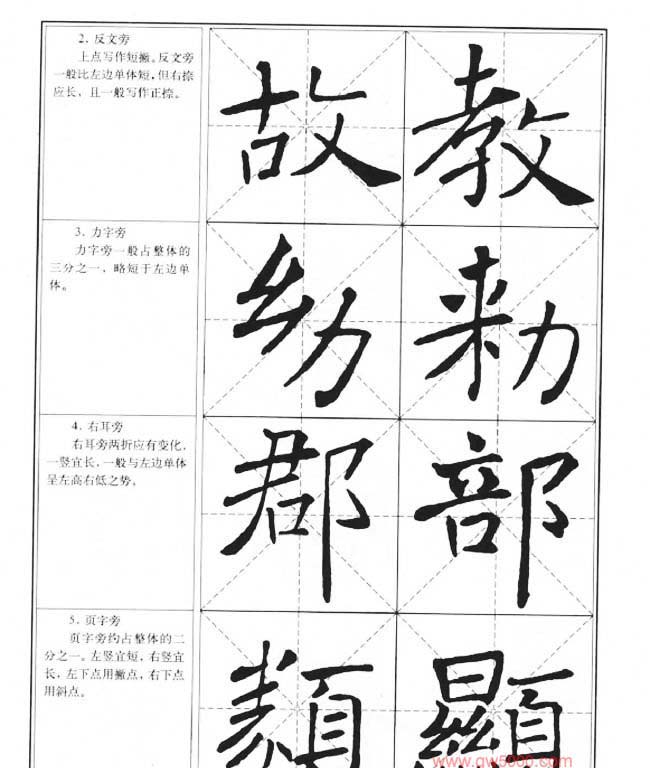 2. 反文旁
上点写作短撇。反文旁
一般比左边单体短，但右捺
应长、且一般写作正捺。
故教
3. 力字旁
力字旁一般占整体的
三分之一、略短于左边单
体。
幼勑
4. 右耳旁
右耳旁两折应有变化，
一竖宜长，一般与左边单体
呈左高右低之势。
郡部
5. 页字旁
页字旁约占整体的二
分之一。左竖宜短，右竖宜
长，左下点用撇点，右下点
用斜点。
顯
www.qw5000.com